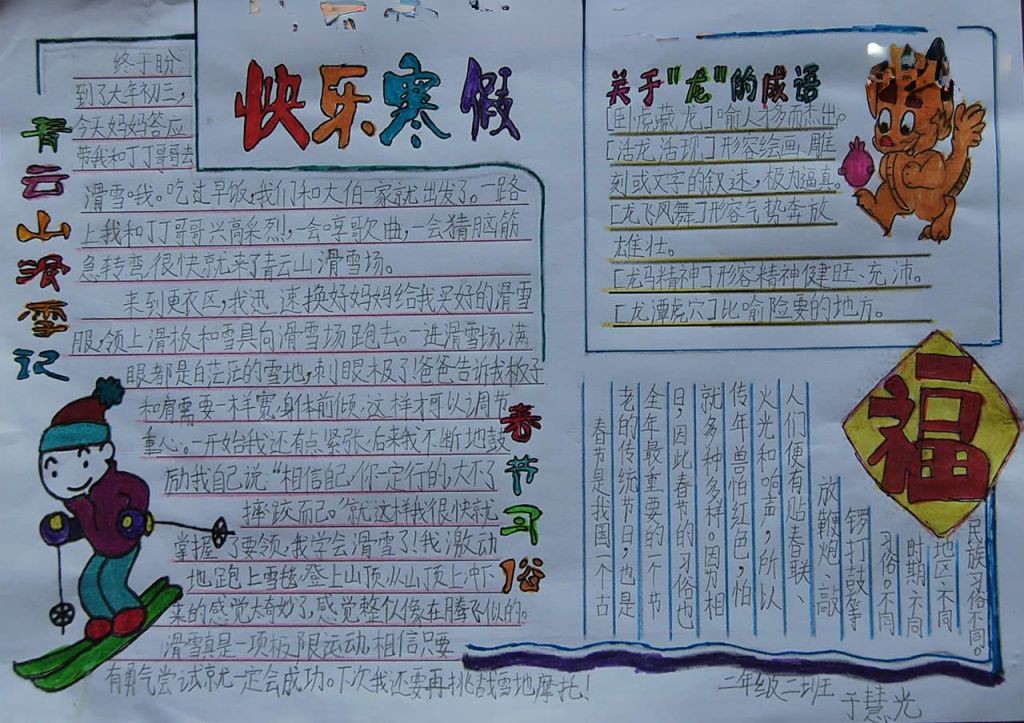 快乐寒假
青云山滑雪记
终于盼
到了大年初三，
今天妈妈答应
带我和丁丁哥哥去
滑雪哦。吃过早饭，我们和大伯一家就出发了。一路
上我和丁丁哥哥兴高采烈，一会哼歌曲，一会猜脑筋
急转弯，很快就来了青云山滑雪场。
来到更衣区，我迅速换好妈妈给我买好的滑雪
服，领上滑板和雪具向滑雪场跑去。一进滑雪场，满
眼都是白茫茫的雪地，刺眼极了！爸爸告诉我板子
和肩需要一样宽，身体前倾，这样才可以调节
重心。一开始我还有点紧张，后来我不断地鼓
励我自己说“相信自己，你一定行的，大不了
摔跤而已。”就这样我很快就
掌握了要领，我学会滑雪了！我激动
地跑上雪毯，登上山顶，从山顶上冲下
来的感觉太奇妙了，感觉整个人像在腾飞似的。
滑雪真是一项极限运动，相信只要
有勇气尝试就一定会成功。下次我还要再挑战雪地摩托！
关于"龙"的成语
[卧虎藏龙]喻人才多而杰出。
[活龙活现]形容绘画、雕
刻或文字的叙述，极为逼真。
[龙飞凤舞]形容气势奔放
雄壮。
[龙马精神]形容精神健旺、充沛。
[龙潭虎穴]比喻险要的地方。
福
春节习俗
春节是我国一个古
老的传统节日，也是
全年最重要的一个节
日，因此春节的习俗也
就多种多样。因为相
传年兽怕红色，怕
火光和响声，所以
人们便有贴春联、
放鞭炮、敲
锣打鼓等
习俗。不同
时期、不同
地区、不同
民族习俗不同。
二年级二班 于慧光